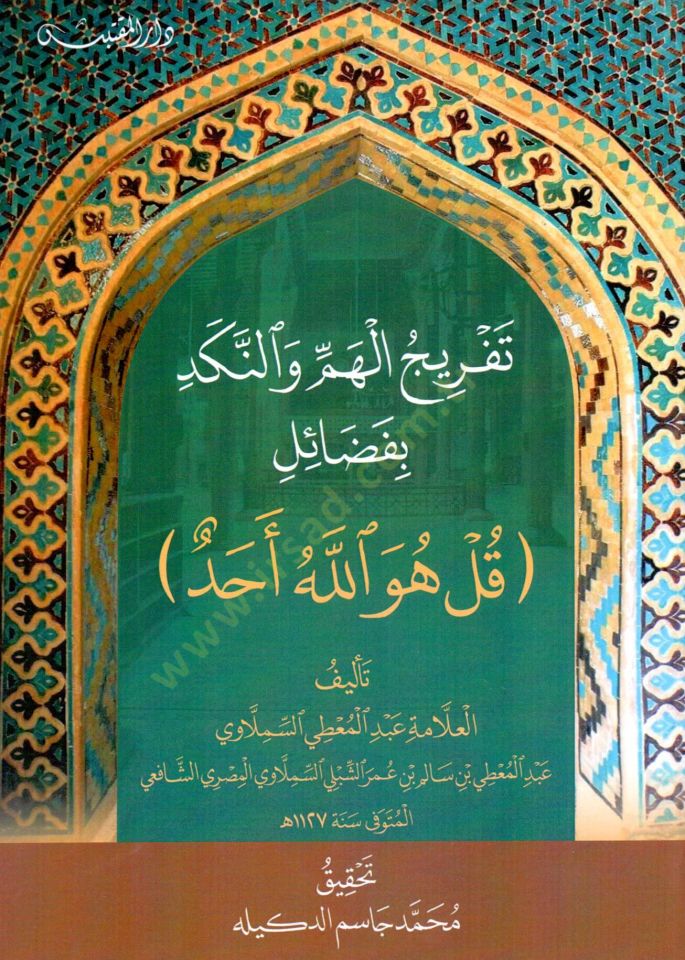 دار المقتبس
تَفْرِيجُ الْهَمِّ وَٱلنَّكَدِ
بِفَضَائِلِ
(قُلْ هُوَ ٱللَّهُ أَحَدٌ)
www.irsad.com.tr
تَأْلِيفُ
الْعَلَّامَةِ عَبْدِ الْمُعْطِي السِّمِلَّاوِي
عَبْدِ الْمُعْطِي بْنِ سَالِمِ بْنِ عُمَرَ الشِّبْلِي السِّمِلَّاوِي الْمِصْرِي الشَّافِعِي
الْمُتَوَفَّى سَنَة ١١٢٧هـ
تَحْقِيقُ
مُحَمَّد جَاسِم الدكيله